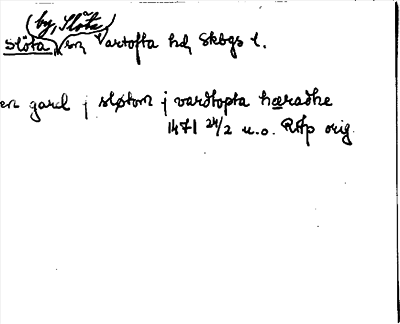 (by, Slöta)
Slöta, sn Vartofta hd, Skbgs l.
en gard j sløtom j vardtopta hæradhe
1471 24/2 u.o. RAp orig.